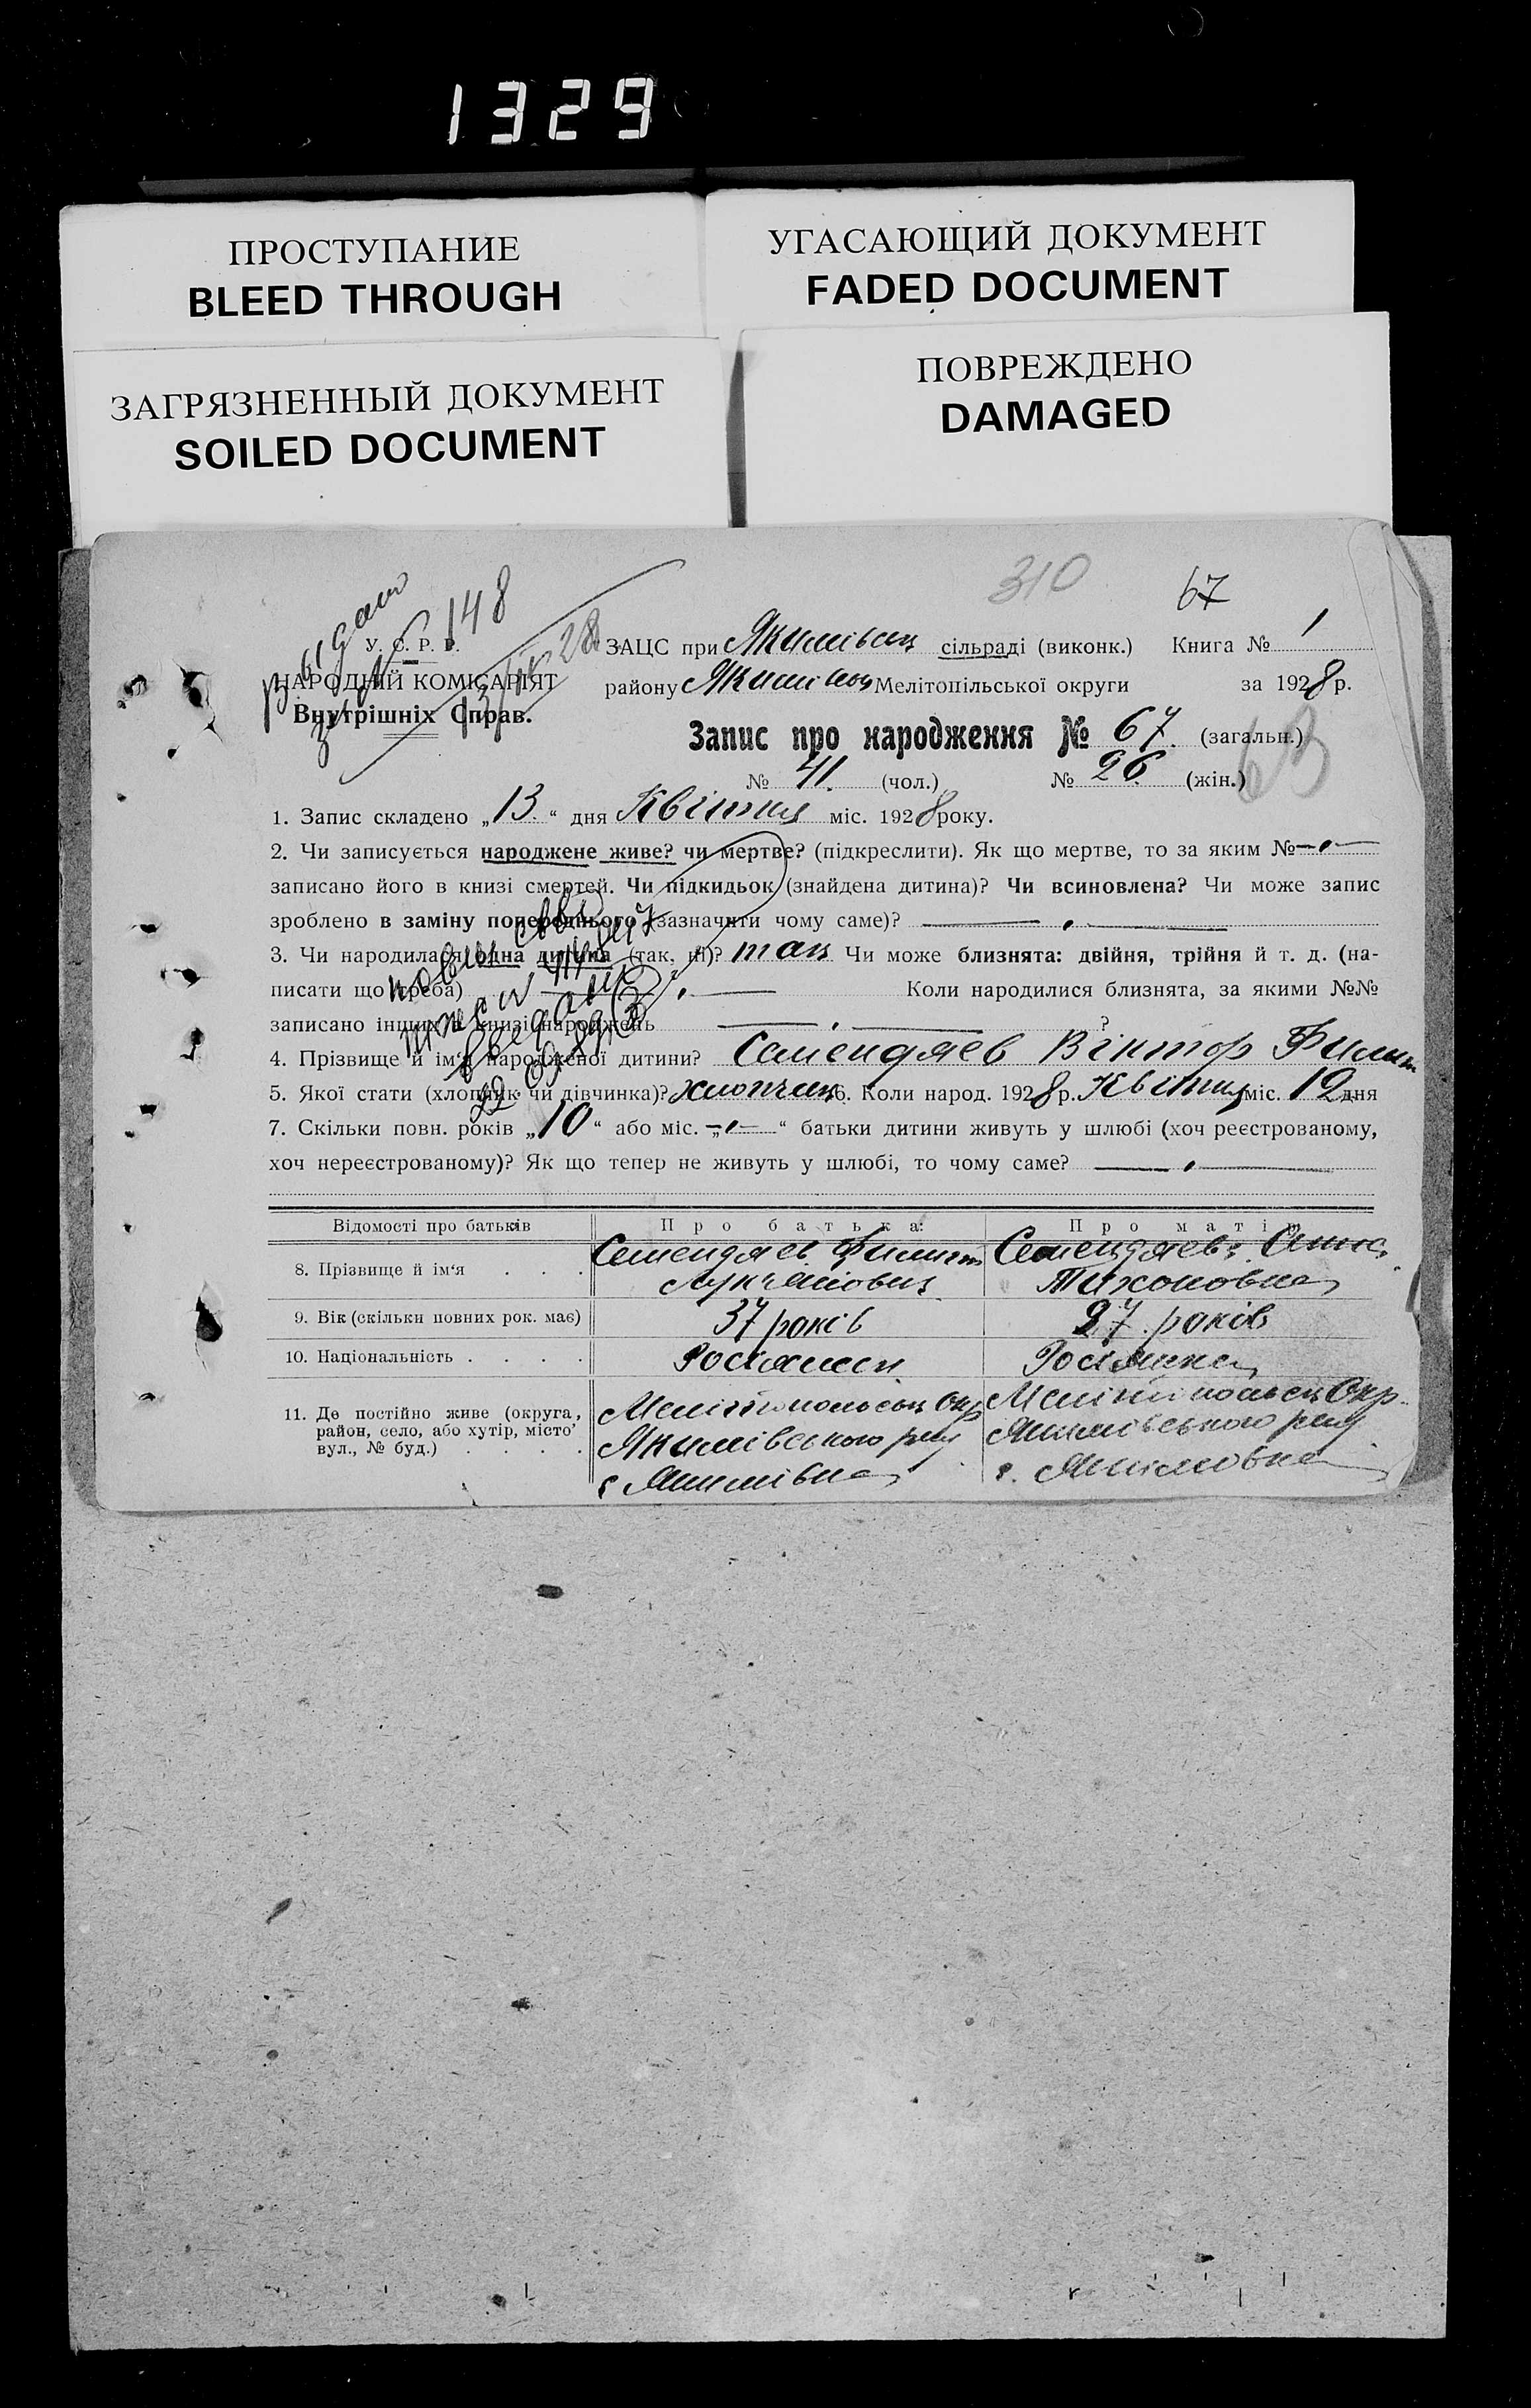 1329
ПРОСТУПАНИЕ
BLEED THROUGH
УГАСАЮЩИЙ ДОКУМЕНТ
FADED DOCUMENT
ЗАГРЯЗНЕННЫЙ ДОКУМЕНТ
SOILED DOCUMENT
ПОВРЕЖДЕНО
DAMAGED
310
67
148
У. С. Р. Р.
НАРОДНІЙ КОМІСАРІЯТ
Внутрішніх Справ.
ЗАЦС при Якимівськ сільраді (виконк.) Книга № 1
району Якимівськ Мелітопільської округи за 1928 р.
Запис про народження № 67. (загальн.)
№ 41. (чол.) № 26. (жін.)
63
1. Запис складено „13.“ дня Квітня міс. 1928 року.
2. Чи записується народжене живе? чи мертве? (підкреслити). Як що мертве, то за яким №
записано його в книзі смертей. Чи підкидьок (знайдена дитина)? Чи всиновлена? Чи може запис
зроблено в заміну попереднього (зазначити чому саме)?
3. Чи народилася одна дитина (так, ні)? так Чи може близнята: двійня, трійня й т. д. (на-
писати що треба) Коли народилися близнята, за якими №№
записано інших в книзі народжень ?
4. Прізвище й ім‘я народженої дитини? Семендяев Віктор Филип
5. Якої стати (хлопчик чи дівчинка)? хлопчик 6. Коли народ. 1928 р. Квітня міс. 12 дня
7. Скільки повн. років „10“ або міс. „—“ батьки дитини живуть у шлюбі (хоч реєстрованому,
хоч нереєстрованому)? Як що тепер не живуть у шлюбі, то чому саме?
Відомості про батьків Про батька: Про матір
8. Прізвище й ім‘я . . . Семендяев Филип Семендяева Анна
Лук'янович Тихоновна
9. Вік (скільки повних рок. має) 37 років 27 років
10. Національність . . . . Росіянин Росіянка
11. Де постійно живе (округа,
район, село, або хутір, місто
вул., № буд.) . . . .
Мелітопольськ Окр
Якимівського рну
с Якимівка
Мелітопольськ Окр.
Якимівського рну
с. Якимовка